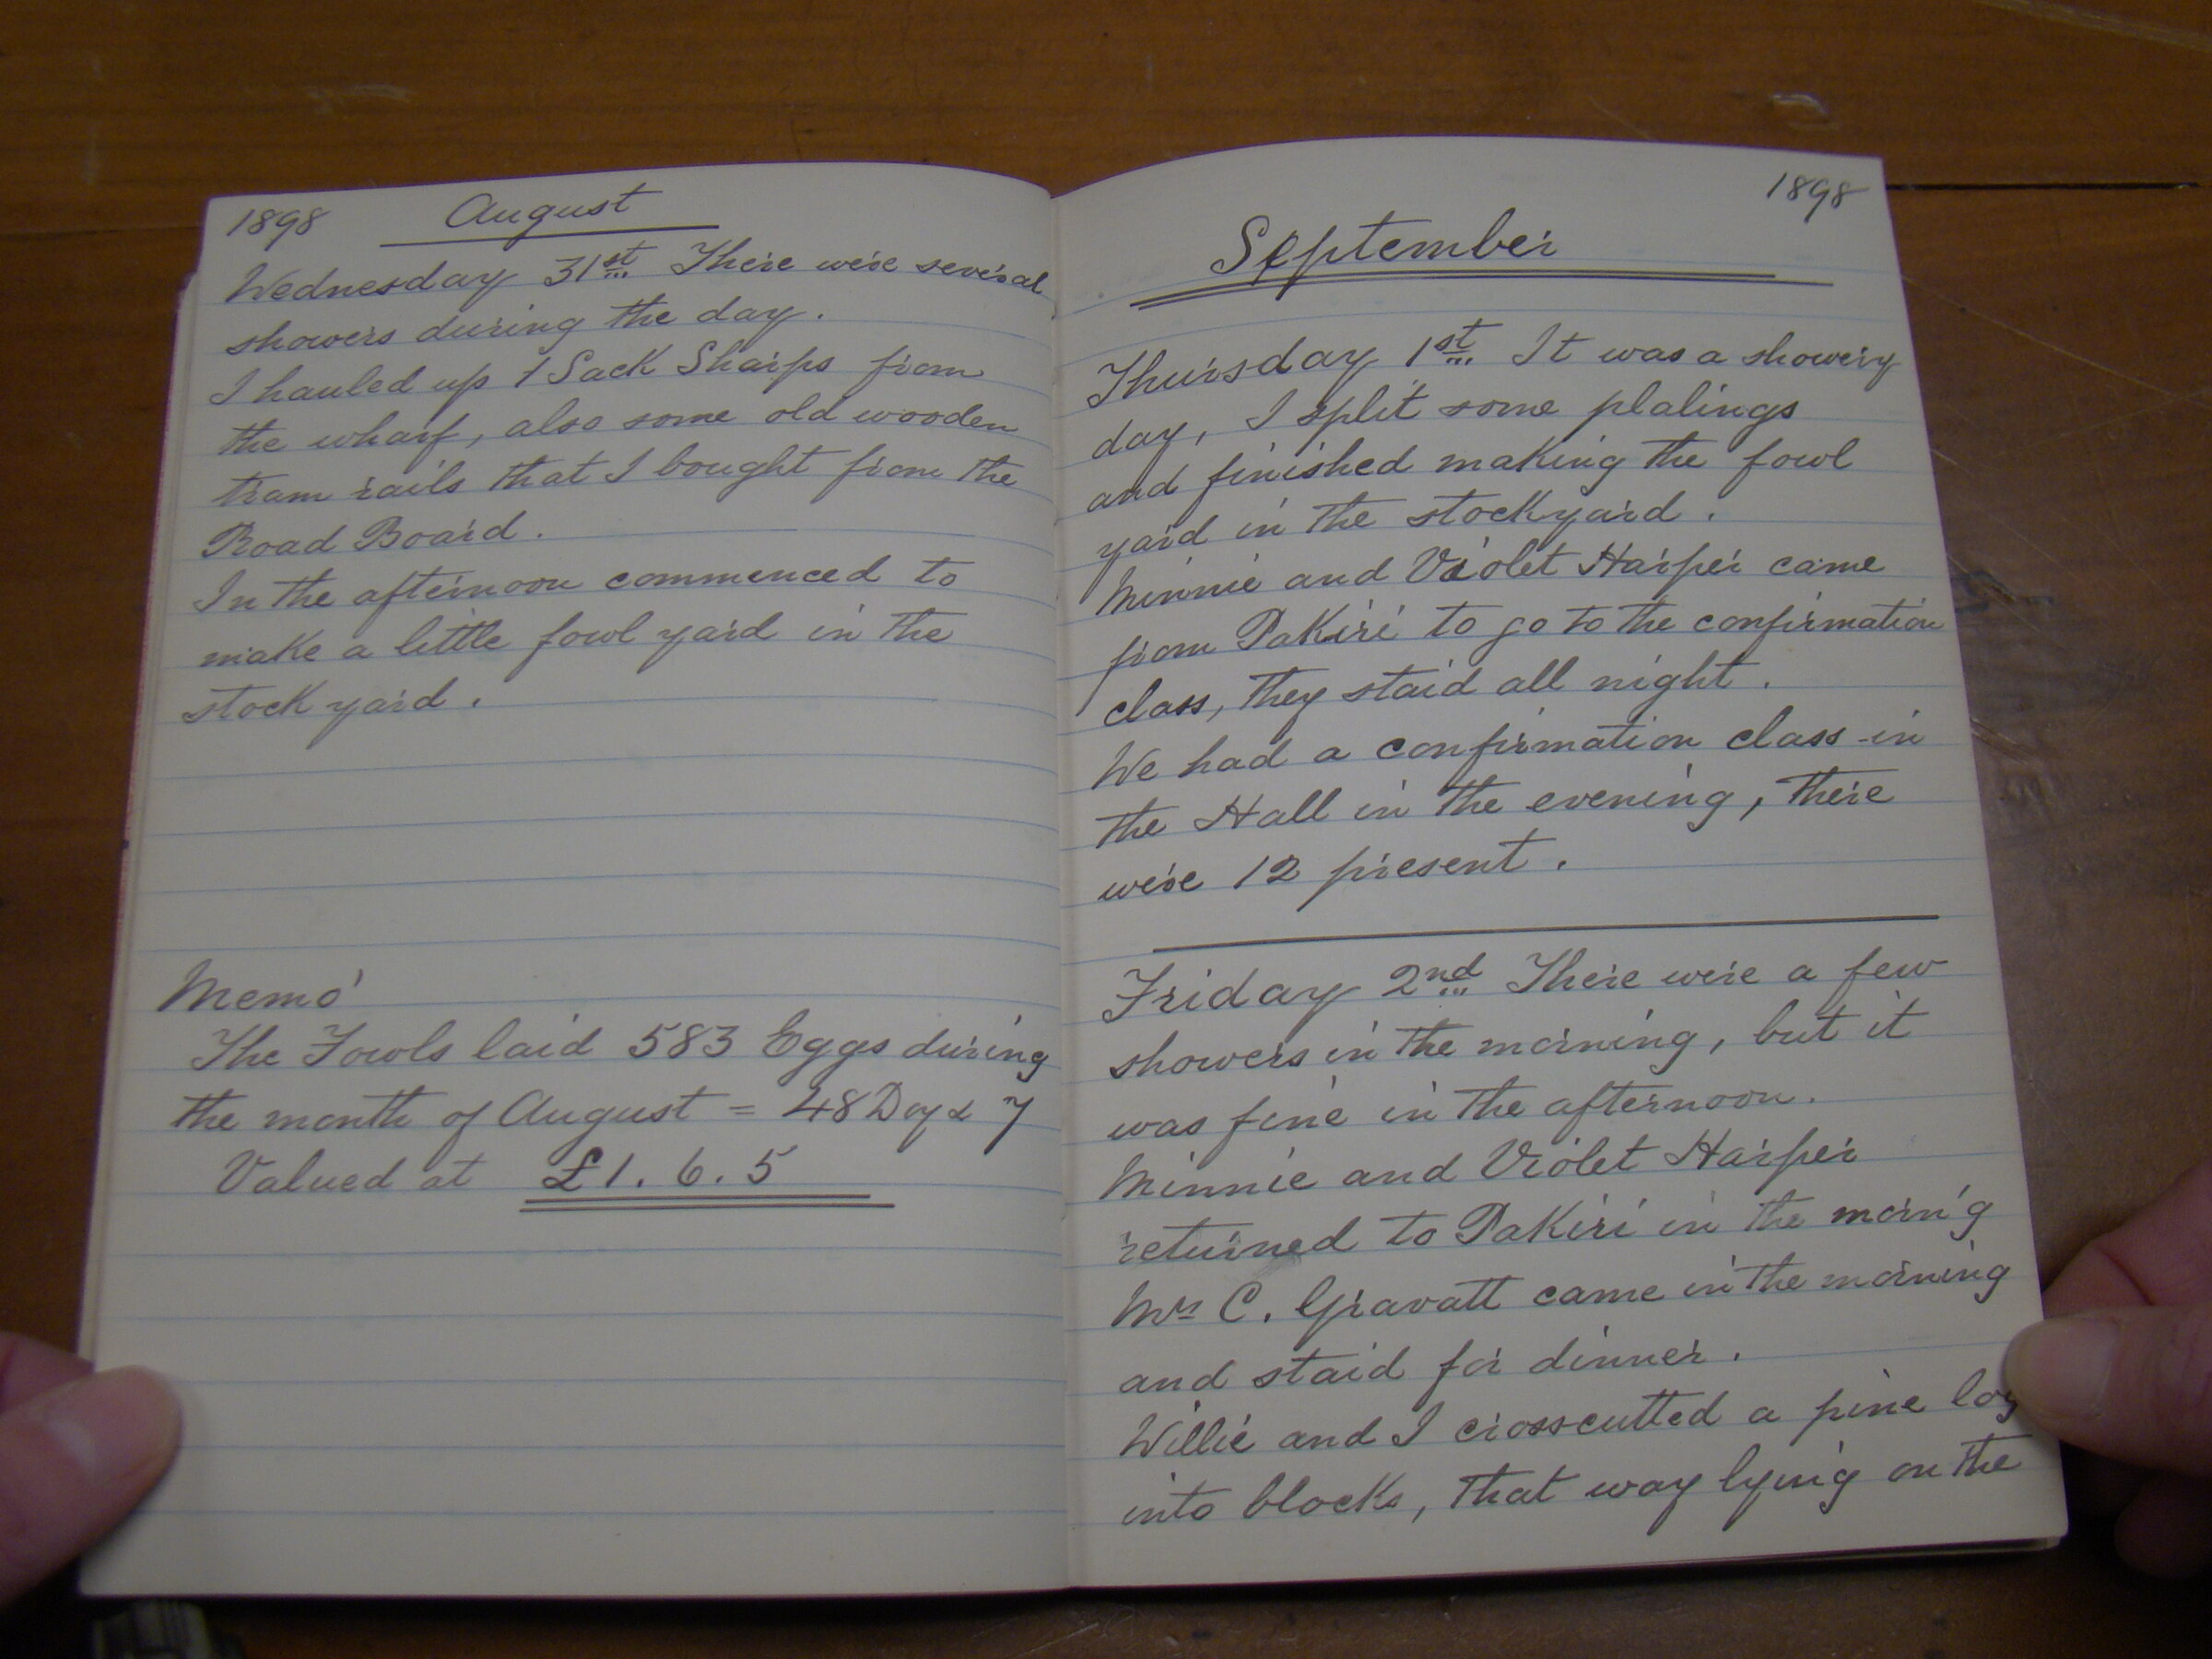 1898 August
Wednesday 31st There were several
showers during the day.
I hauled up 1 Sack Sharps from
the wharf, also some old wooden
tram rails that I bought from the
Road Board.
In the afternoon commenced to
make a little fowl yard in the
stock yard.
Memo
The Fowls laid 583 Eggs during
the month of August = 48 Doz & 7
Valued at £1. 6. 5
1898
September
Thursday 1st It was a showery
day, I split some plalings
and finished making the fowl
yard in the stockyard.
Minnie and Violet Harper came
from Pakiri to go to the confirmation
class, they staid all night.
We had a confirmation class in
the Hall in the evening, there
were 12 present.
Friday 2nd There were a few
showers in the morning, but it
was fine in the afternoon.
Minnie and Violet Harper
returned to Pakiri in the morn'g
Mrs C. Gravatt came in the morning
and staid for dinner.
Willie and I crosscutted a pine log
into blocks, that way lying on the